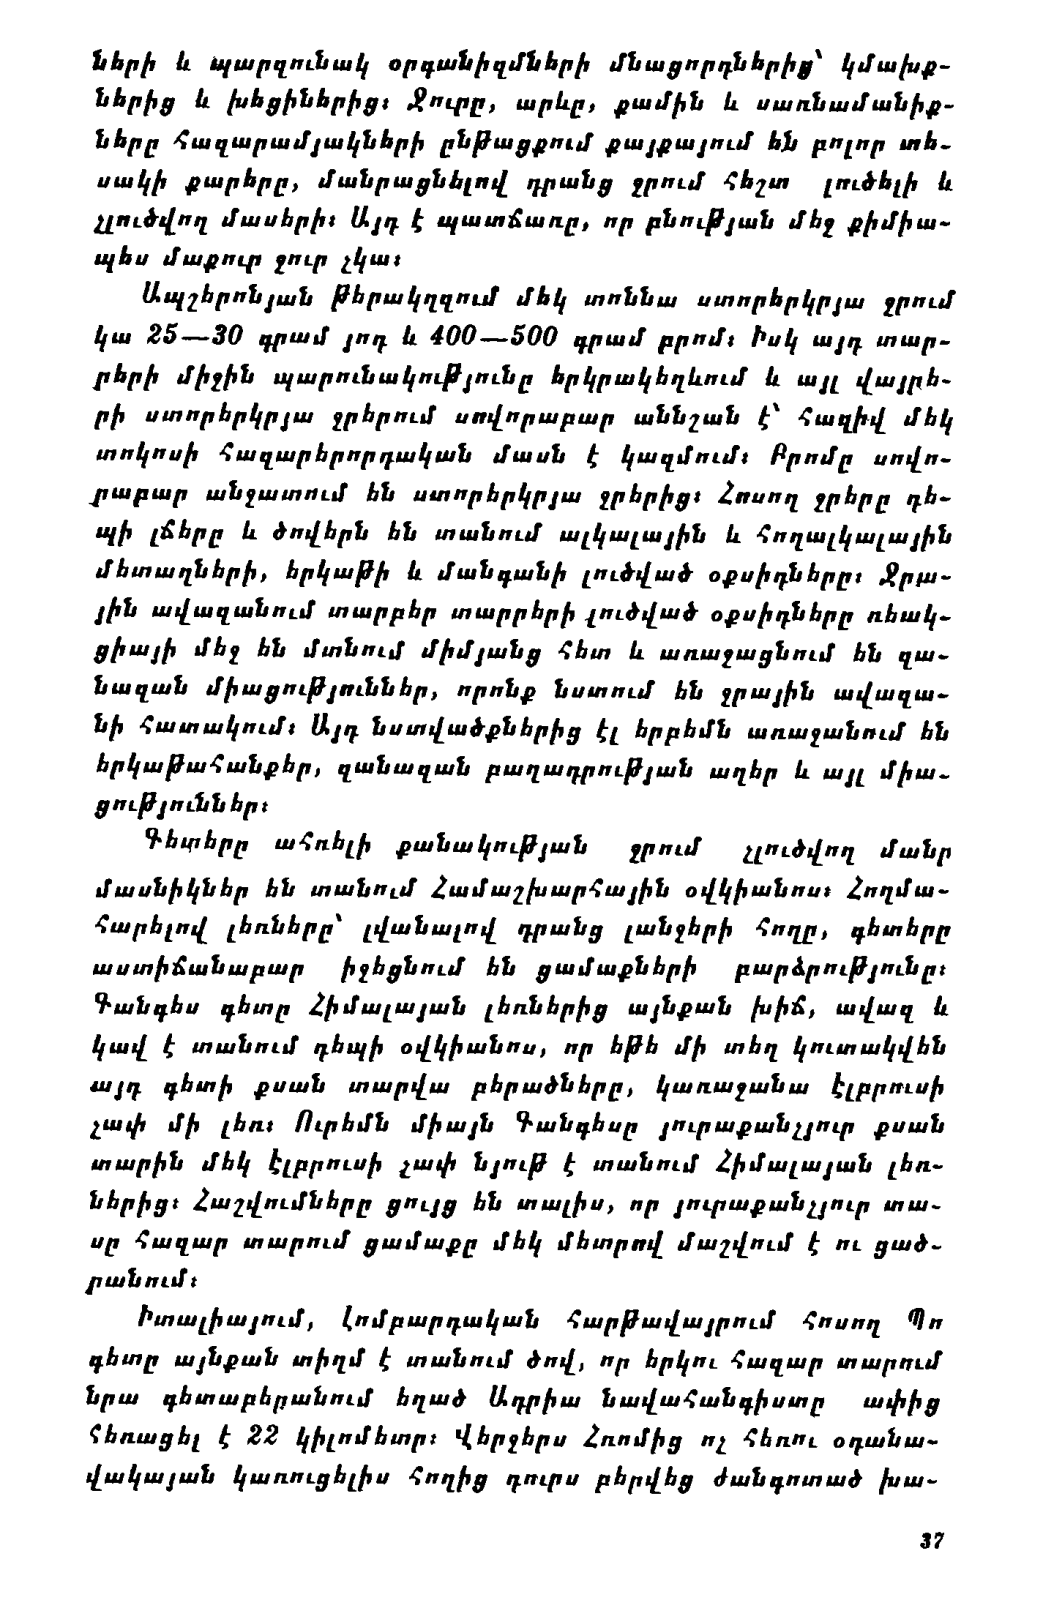 ների և պարզունակ օրգանիզմների մնացորդներից՝ կմախք-
ներից և խեցիներից։ Ջուրը, արևը, քամին և սառնամանիք-
ները հազարամյակների ընթացքում քայքայում են բոլոր տե-
սակի քարերը, մանրացնելով դրանց ջրում հեշտ լուծելի և
չլուծվող մասերի։ Այդ է պատճառը, որ բնության մեջ քիմիա-
պես մաքուր ջուր չկա։
Ապշերոնյան թերակղզում մեկ տոննա ստորերկրյա ջրում
կա 25—30 գրամ յոդ և 400—500 գրամ բրոմ։ Իսկ այդ տար-
րերի միջին պարունակությունը երկրակեղևում և այլ վայրե-
րի ստորերկրյա ջրերում սովորաբար աննշան է՝ հազիվ մեկ
տոկոսի հազարերորդական մասն է կազմում։ Բրոմը սովո-
րաբար անջատում են ստորերկրյա ջրերից։ Հոսող ջրերը դե-
պի լճերը և ծովերն են տանում ալկալային և հողալկալային
մետաղների, երկաթի և մանգանի լուծված օքսիդները։ Ջրա-
յին ավազանում տարբեր տարրերի լուծված օքսիդները ռեակ-
ցիայի մեջ են մտնում միմյանց հետ և առաջացնում են զա-
նազան միացություններ, որոնք նստում են ջրային ավազա-
նի հատակում։ Այդ նստվածքներից էլ երբեմն առաջանում են
երկաթահանքեր, զանազան բաղադրության աղեր և այլ միա-
ցություններ։
Գետերը ահռելի քանակության ջրում չլուծվող մանր
մասնիկներ են տանում Համաշխարհային օվկիանոս։ Հողմա-
հարելով լեռները՝ լվանալով դրանց լանջերի հողը, գետերը
աստիճանաբար իջեցնում են ցամաքների բարձրությունը։
Գանգես գետը Հիմալայան լեռներից այնքան խիճ, ավազ և
կավ է տանում դեպի օվկիանոս, որ եթե մի տեղ կուտակվեն
այդ գետի քսան տարվա բերածները, կառաջանա Էլբրուսի
չափ մի լեռ։ Ուրեմն միայն Գանգեսը յուրաքանչյուր քսան
տարին մեկ Էլբրուսի չափ նյութ է տանում Հիմալայան լեռ-
ներից։ Հաշվումները ցույց են տալիս, որ յուրաքանչյուր տա-
սը հազար տարում ցամաքը մեկ մետրով մաշվում է ու ցած-
րանում։
Իտալիայում, Լոմբարդական հարթավայրում հոսող Պո
գետը այնքան տիղմ է տանում ծով, որ երկու հազար տարում
նրա գետաբերանում եղած Ադրիա նավահանգիստը ափից
հեռացել է 22 կիլոմետր։ Վերջերս Հռոմից ոչ հեռու օդանա-
վակայան կառուցելիս հողից դուրս բերվեց ժանգոտած խա-
37